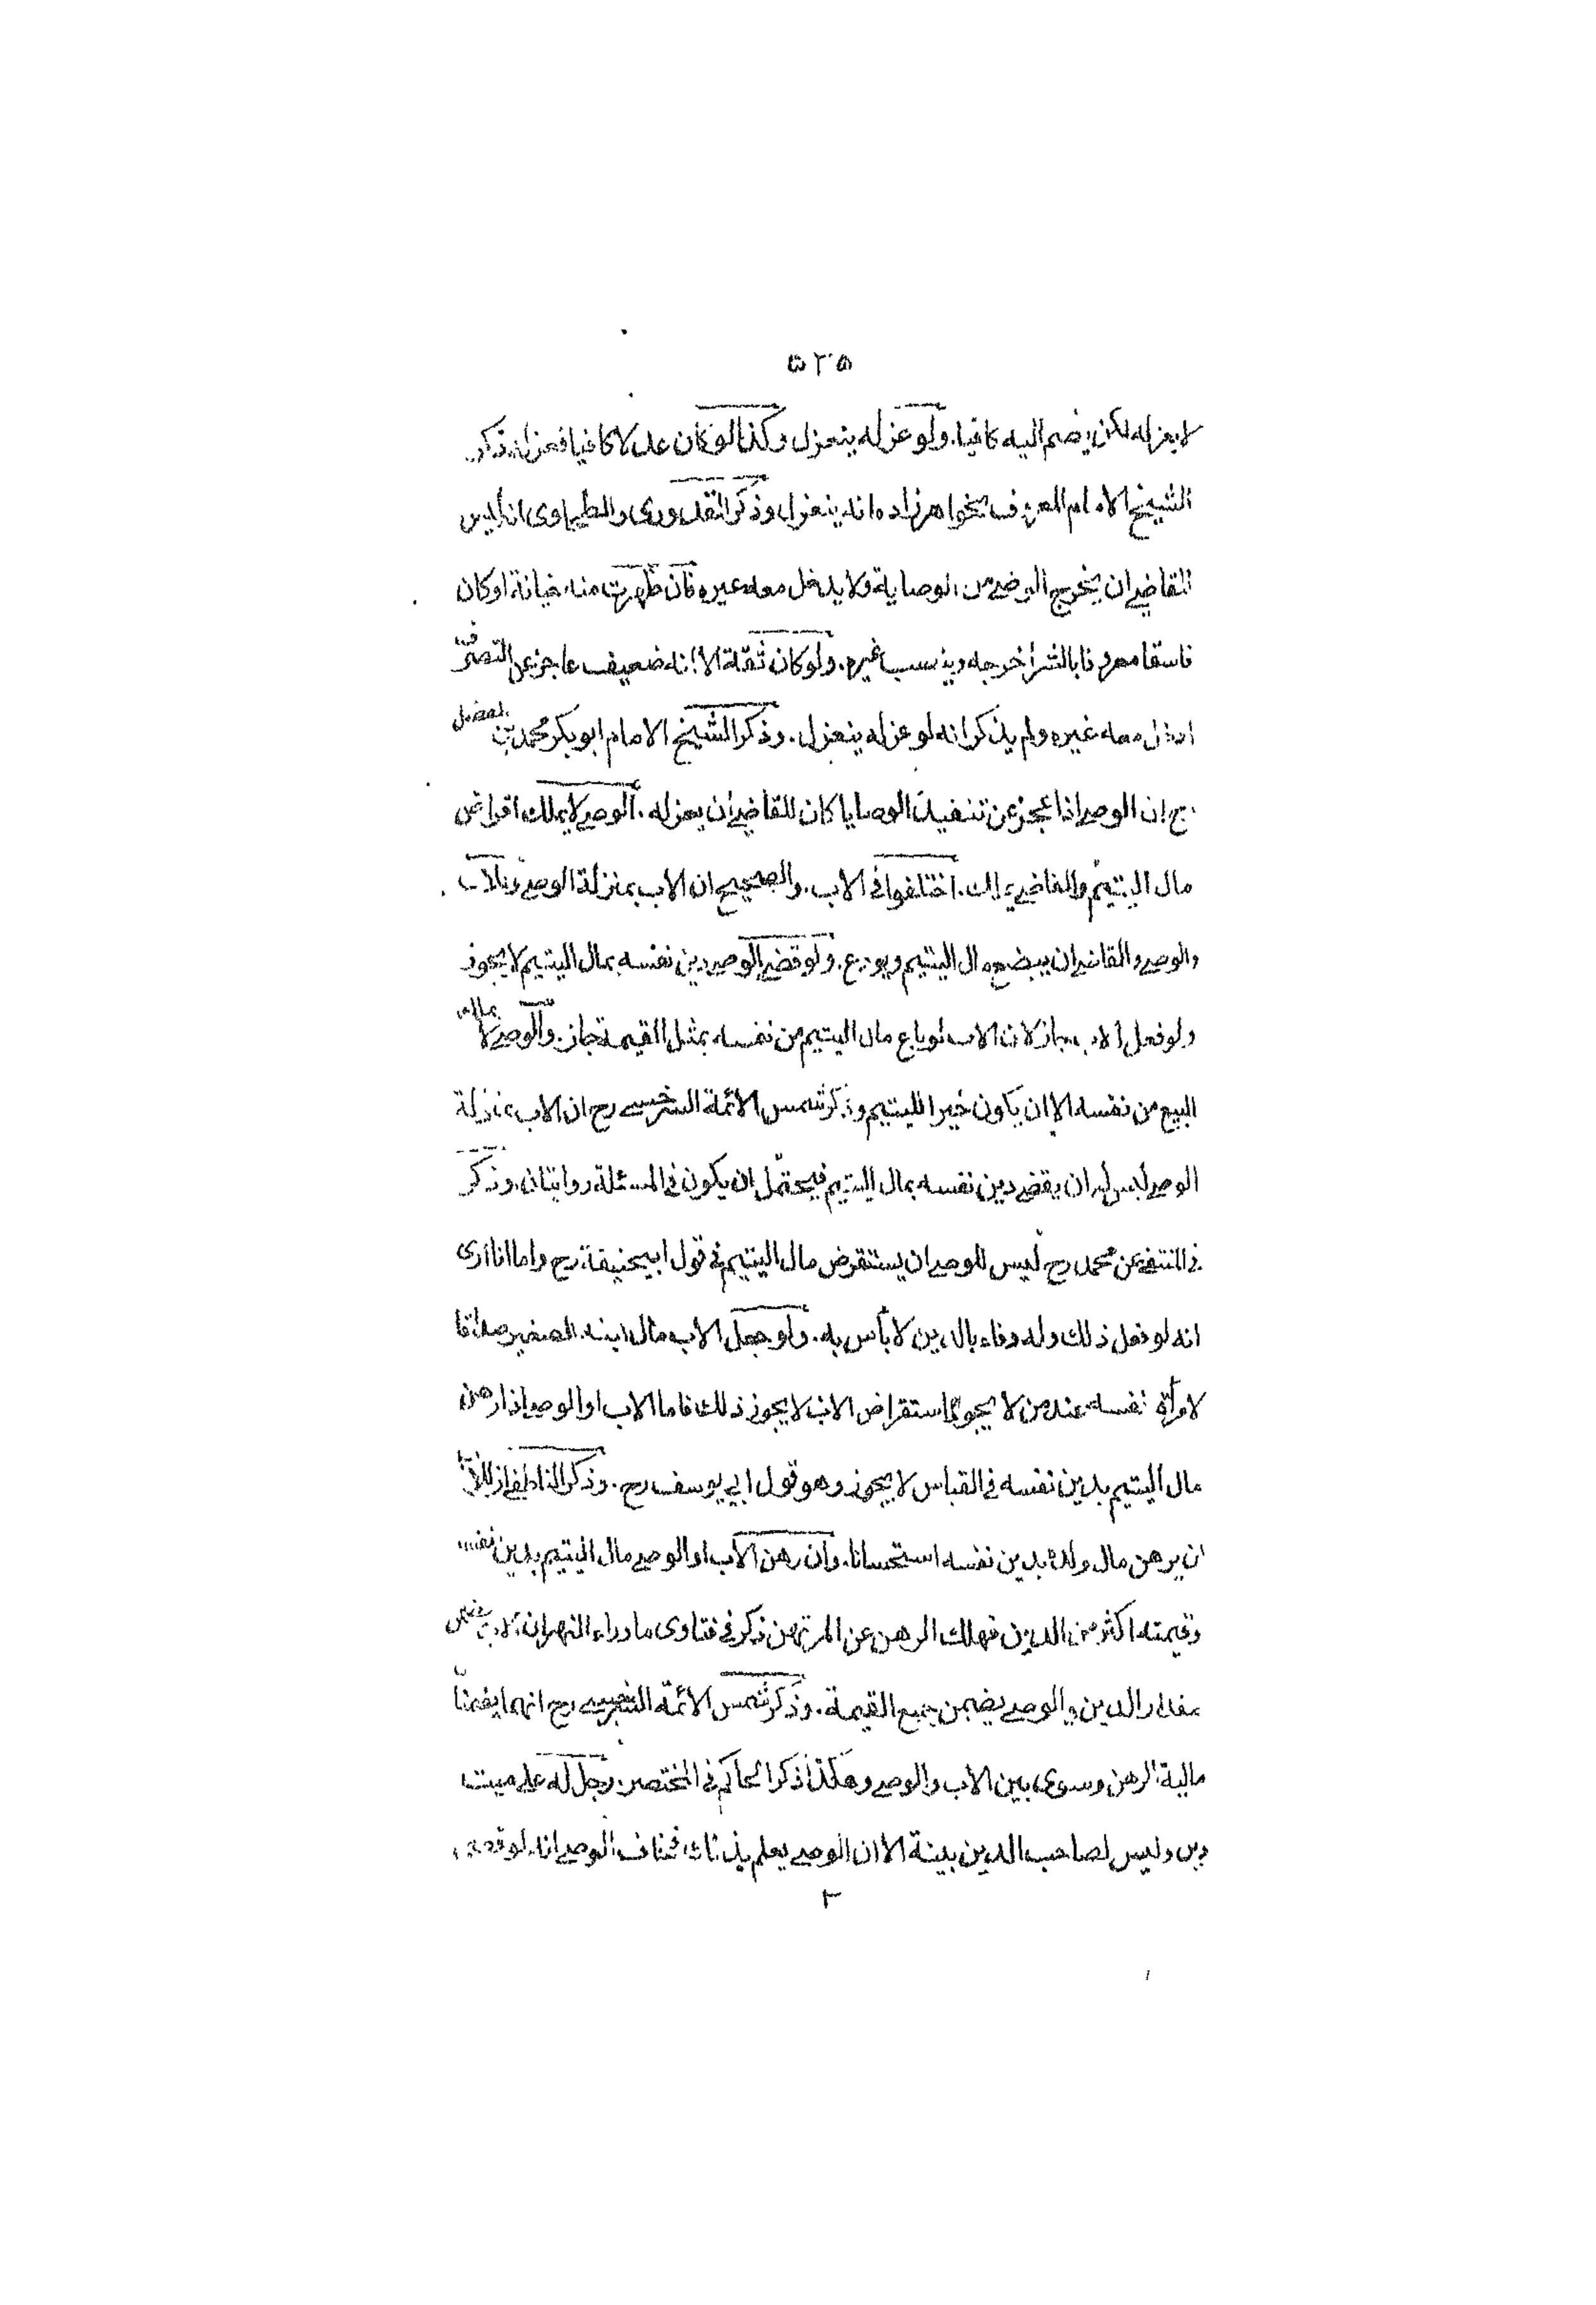 ٥٢٥
لا يعزله لكن يضم اليه كافيا. ولو عزله ينعزل وكذا لو كان عدلا كافيا فعزله ذكر
الشيخ الامام المعروف بخواهرزاده انه ينعزل وذكر القدوري والطحاوى انه ليس
للقاضي ان يخرج الوصي من الوصاية ولا يدخل معه غيره فان ظهرت منه خيانة او كان
فاسقا معروفا بالشر اخرجه وينصب غيره. ولو كان ثقة الا انه ضعيف عاجز عن التصرف
ادخل معه غيره ولم يذكر انه لو عزله ينعزل. وذكر الشيخ الامام ابو بكر محمد بن الفضل
رح ان الوصي اذا عجز عن تنفيذ الوصايا كان للقاضي ان يعزله. الوصي لا يملك اقراض
مال اليتيم والقاضي يملك. اختلفوا فى الاب. والصحيح ان الاب بمنزلة الوصي وللاب
والوصي والقاضي ان يبضع مال اليتيم ويودع. ولو قضى الوصي دين نفسه بمال اليتيم لا يجوز
ولو فعل الاب جاز لان الاب لو باع مال اليتيم من نفسه بمثل القيمة جاز. والوصي لا يملك
البيع من نفسه الا ان يكون خيرا لليتيم وذكر شمس الائمة السرخسي رح ان الاب بمنزلة
الوصي ليس له ان يقضي دين نفسه بمال اليتيم فيحتمل ان يكون فى المسئلة روايتان. وذكر
فى المنتقى عن محمد رح ليس للوصي ان يستقرض مال اليتيم فى قول ابيحنيفة رح واما انا ارى
انه لو فعل ذلك وله وفاء بالدين لا بأس به. ولو جعل الاب مال ابنه الصغير صداقا
لامرأة نفسه عند من لا يجوز استقراض الاب لا يجوز ذلك فاما الاب او الوصي اذا رهن
مال اليتيم بدين نفسه فى القياس لا يجوز وهو قول ابي يوسف رح. وذكر الناطفي ان للاب
ان يرهن مال ولده بدين نفسه استحسانا. وان رهن الاب او الوصي مال اليتيم بدين نفسه
وقيمته اكثر من الدين فهلك الرهن عن المرتهن ذكر فى فتاوى ما وراء النهر ان الاب يضمن
مقدار الدين والوصي يضمن جميع القيمة. وذكر شمس الائمة السرخسي رح انهما يضمنان
مالية الرهن وسوى بين الاب والوصي وهكذا ذكر الحاكم فى المختصر. رجل له على ميت
دين وليس لصاحب الدين بينة الا ان الوصي يعلم بذلك فخاف الوصي انه لو قضى
٢